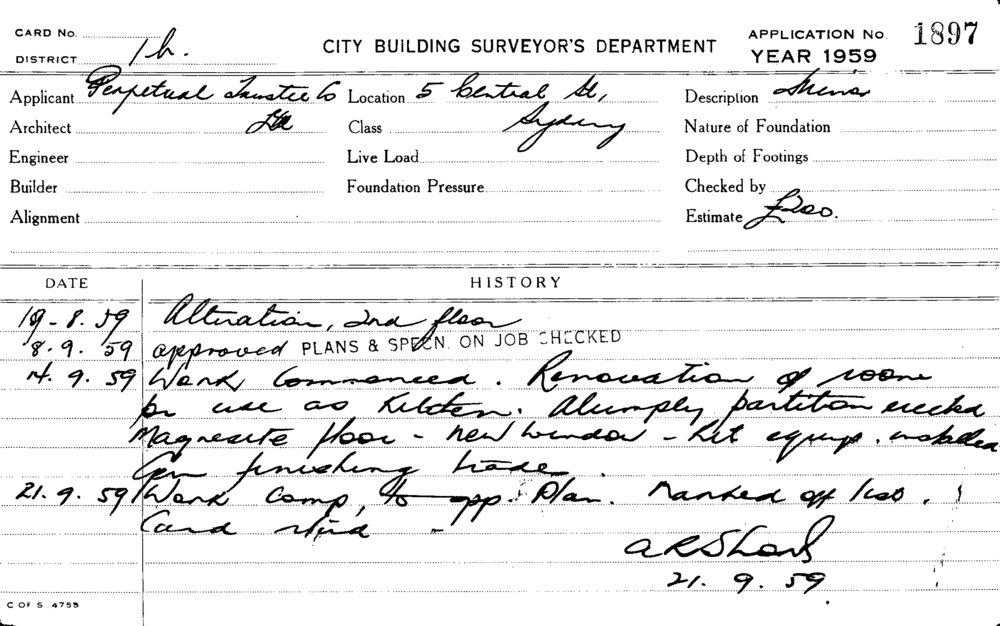 CARD No.
DISTRICT 1b.
CITY BUILDING SURVEYOR'S DEPARTMENT
APPLICATION No. 1897
YEAR 1959
Applicant Perpetual Trustee Co Location 5 Central St, Description Minor
Architect Ltd Class Sydney Nature of Foundation
Engineer Live Load Depth of Footings
Builder Foundation Pressure Checked by
Alignment Estimate £200.
DATE HISTORY
19-8.59 Alteration, 2nd floor
8.9.59 approved PLANS & SPECN. ON JOB CHECKED
14.9.59 Work Commenced. Renovation of room
for use as Kitchen. Alumply partition erected
Magnesite floor - new window - kit equip. installed
Gen finishing trade.
21.9.59 Work Comp, to app. Plan. Marked off list.
Card
A R Sharp
21.9.59
C OF S 4755